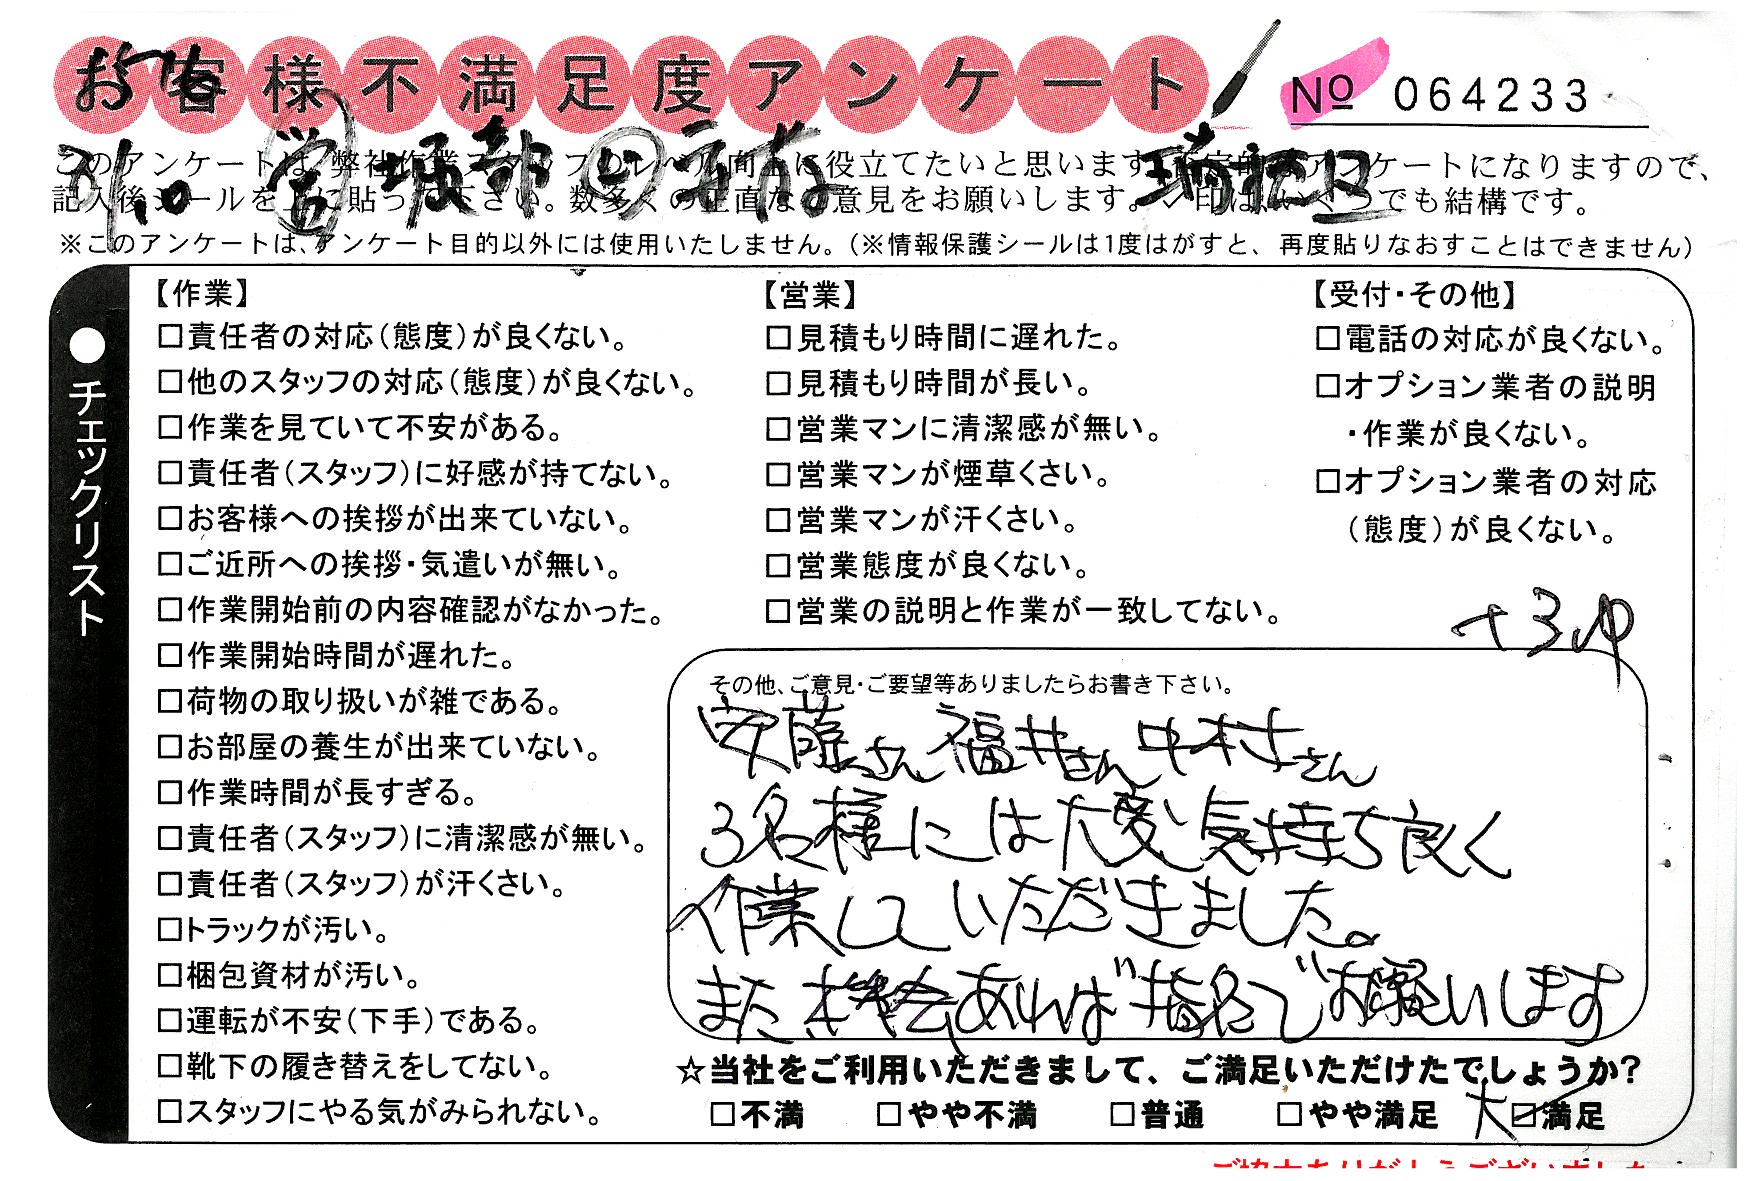 お客様不満足度アンケート
No 064233
このアンケートは、弊社作業スタッフのレベル向上に役立てたいと思います。アンケートになりますので、
記入後シールを上に貼って下さい。数多くの正直なご意見をお願いします。レ印は、いくつでも結構です。
※このアンケートは、アンケート目的以外には使用いたしません。(※情報保護シールは1度はがすと、再度貼りなおすことはできません)
●チェックリスト
【作業】
□責任者の対応(態度)が良くない。
□他のスタッフの対応(態度)が良くない。
□作業を見ていて不安がある。
□責任者(スタッフ)に好感が持てない。
□お客様への挨拶が出来ていない。
□ご近所への挨拶・気遣いが無い。
□作業開始前の内容確認がなかった。
□作業開始時間が遅れた。
□荷物の取り扱いが雑である。
□お部屋の養生が出来ていない。
□作業時間が長すぎる。
□責任者(スタッフ)に清潔感が無い。
□責任者(スタッフ)が汗くさい。
□トラックが汚い。
□梱包資材が汚い。
□運転が不安(下手)である。
□靴下の履き替えをしてない。
□スタッフにやる気がみられない。
【営業】
□見積もり時間に遅れた。
□見積もり時間が長い。
□営業マンに清潔感が無い。
□営業マンが煙草くさい。
□営業マンが汗くさい。
□営業態度が良くない。
□営業の説明と作業が一致してない。
【受付・その他】
□電話の対応が良くない。
□オプション業者の説明
・作業が良くない。
□オプション業者の対応
(態度)が良くない。
その他、ご意見・ご要望等ありましたらお書き下さい。
安藤さん 福井さん 中村さん
3名様には大変気持ち良く
作業していただきました。
また機会あれば指名でお願いします
☆当社をご利用いただきまして、ご満足いただけたでしょうか?
□不満 □やや不満 □普通 □やや満足 大☑満足
ご協力ありがとうございました